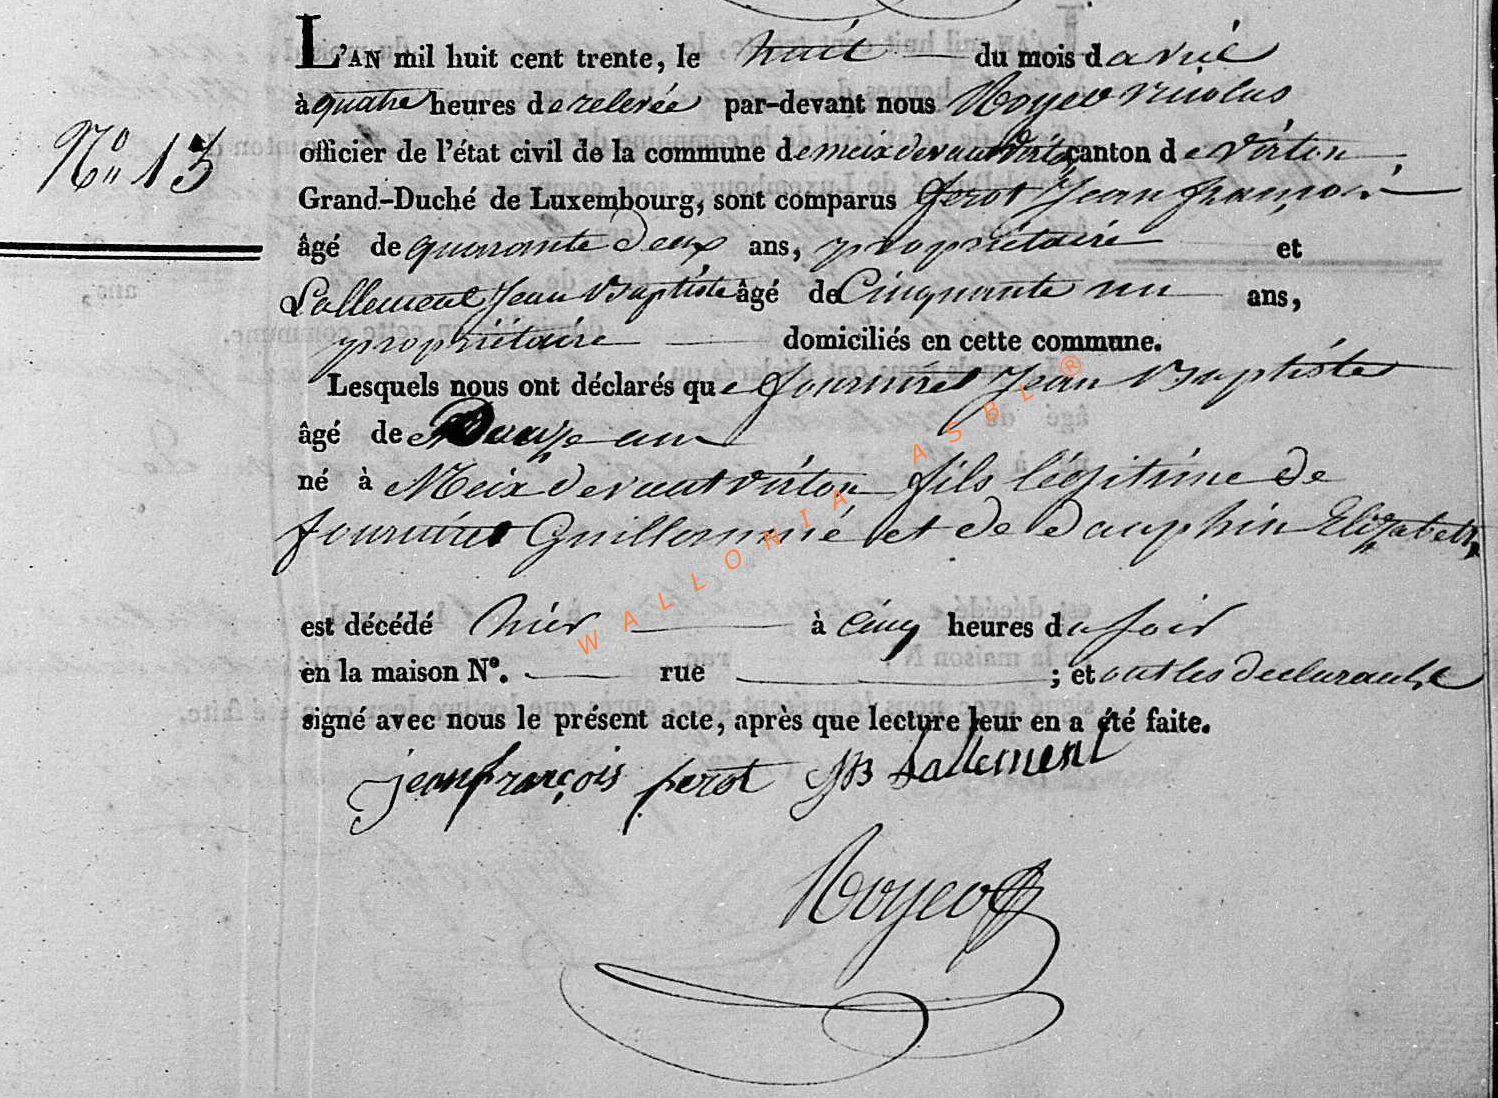 L'AN mil huit cent trente, le huit du mois d avril
à quatre heures d e relevée par-devant nous Noyer Nicolas
officier de l'état civil de la commune d e meix devant virton canton d e Virton
N° 13
Grand-Duché de Luxembourg, sont comparus ferot Jean françois
âgé de quarante deux ans, propriétaire et
Lallement Jean Baptiste âgé de Cinquante un ans,
propriétaire domiciliés en cette commune.
Lesquels nous ont déclarés que Jean Baptiste
âgé de Douze ans
né à Meix devant virton fils légitime de
Guillaume et de dauphin Elizabeth,
est décédé hier à cinq heures du soir
en la maison N°. rue ; et ont les declarants
signé avec nous le présent acte, après que lecture leur en a été faite.
jean françois ferot JB Lallement
WALLONIA ASBL ®